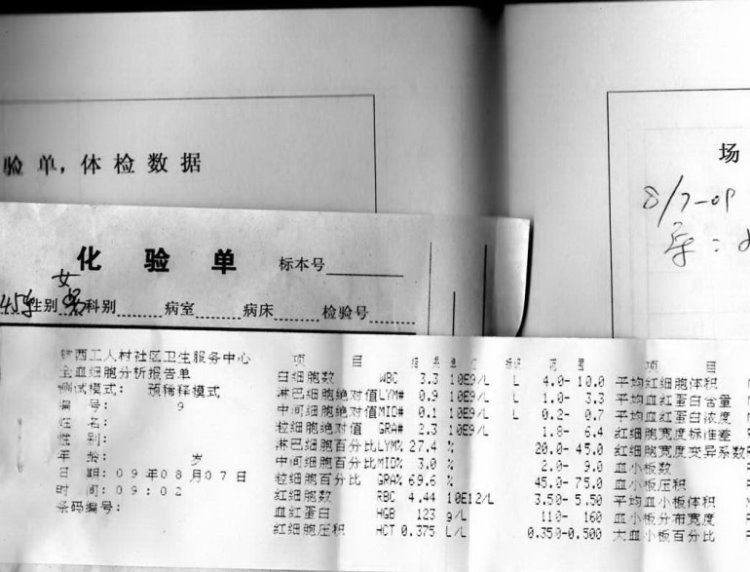 验单,体检数据
场
8/7-09
化验单 标本号
45岁性别 女 科别 病室 病床 检验号
铁西工人村社区卫生服务中心
全血细胞分析报告单
测试模式: 预稀释模式
编 号: 9
姓 名:
性 别:
年 龄: 岁
日 期:09年08月07日
时 间:09:02
条码编号:
项 目 结果 单位 标识 范围
白细胞数 WBC 3.3 10E9/L L 4.0- 10.0
淋巴细胞绝对值LYM# 0.9 10E9/L L 1.0- 3.3
中间细胞绝对值MID# 0.1 10E9/L L 0.2- 0.7
粒细胞绝对值 GRA# 2.3 10E9/L 1.8- 6.4
淋巴细胞百分比LYM% 27.4 % 20.0- 45.0
中间细胞百分比MID% 3.0 % 2.0- 9.0
粒细胞百分比 GRA% 69.6 % 45.0- 75.0
红细胞数 RBC 4.44 10E12/L 3.50- 5.50
血红蛋白 HGB 123 g/L 110- 160
红细胞压积 HCT 0.375 L/L 0.350-0.500
项 目
平均红细胞体积
平均血红蛋白含量
平均血红蛋白浓度
红细胞宽度标准差
红细胞宽度变异系数
血小板数
血小板压积
平均血小板体积
血小板分布宽度
大血小板百分比